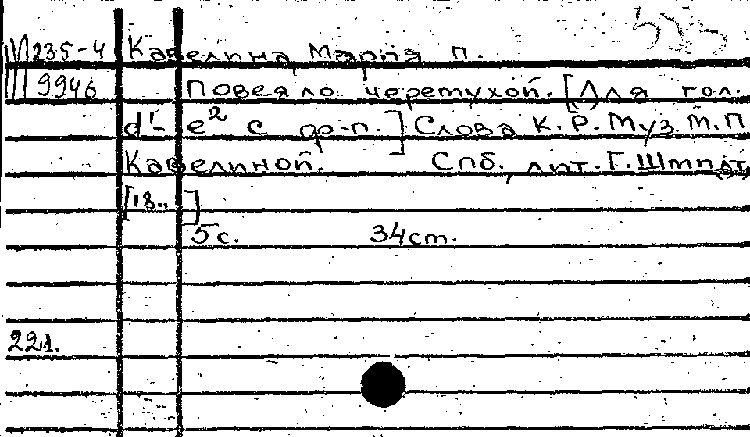 М235-4 Кавелина Мария П.
9946 Повеяло черемухой. [Для гол.
d¹- e² с ф-п.] Слова К.Р. Муз. М.П
Кавелиной. Спб., лит. Г. Шмидт,
[18..]
5с. 34см.
221.